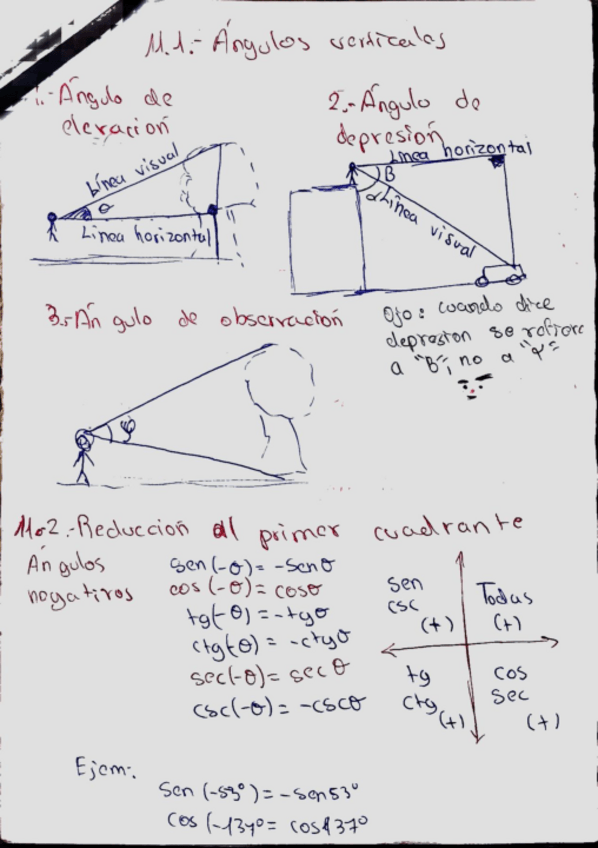 11.1.- Ángulos verticales
1.- Ángulo de
elevación
2.- Ángulo de
depresión
Línea visual
θ
Línea horizontal
Línea horizontal
B
α
Línea visual
3.- Angulo de observación
Ojo: cuando dice
depresion se refiere
a "B", no a "α"
φ
11.2.- Reducción al primer cuadrante
Angulos
negativos
sen(-θ) = -senθ
cos(-θ) = cosθ
tg(-θ) = -tgθ
ctg(-θ) = -ctgθ
sec(-θ) = secθ
csc(-θ) = -cscθ
Sen
csc
(+)
Todas
(+)
tg
ctg
(+)
cos
Sec
(+)
Ejem:
Sen (-53°) = -Sen53°
cos (-137° = cos137°